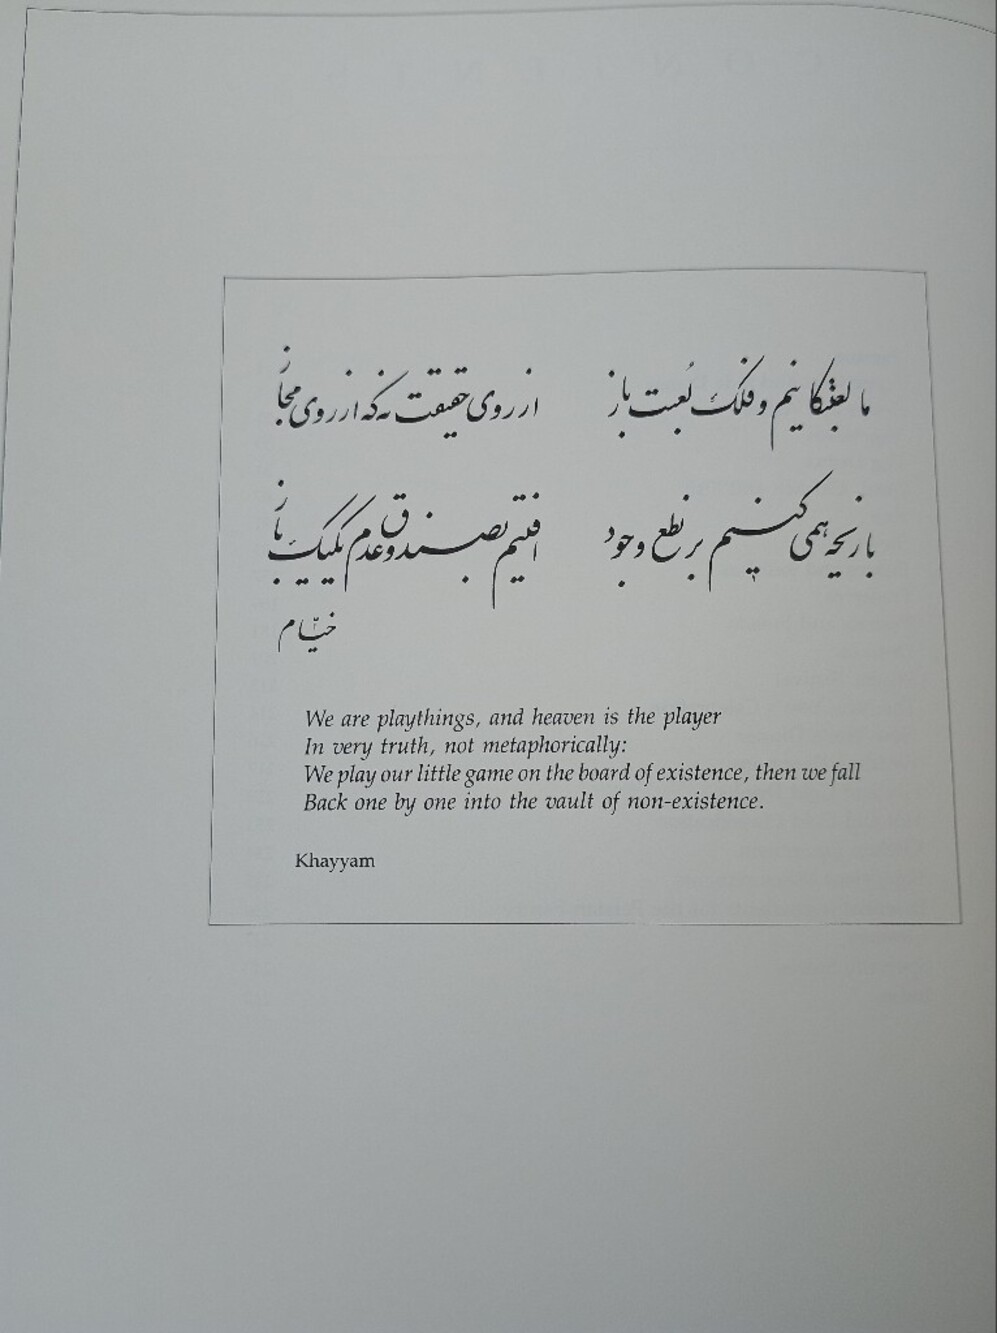 ما لعبتگانیم و فلک لعبت باز از روی حقیقت نه که از روی مجاز
بازیچه همی کنیم بر نطع وجود افتیم بصندوق عدم یکیک باز
خیّام
We are playthings, and heaven is the player
In very truth, not metaphorically:
We play our little game on the board of existence, then we fall
Back one by one into the vault of non-existence.
Khayyam